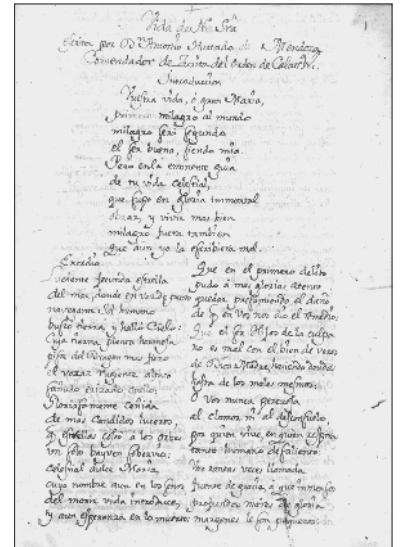 Vida de Nra Sra
Escrita por D. Antonio Hurtado de Mendoza
Comendador de Zurita del Orden de Calatrava
Introducion
Vuestra vida, ó gran Maria,
primero milagro al mundo
milagro será segundo
el ser buena, siendo mia.
Pero en la eminente guia
de tu vida celestial,
que fuese en gloria immortal
obrar, y vivir mas bien
milagro fuera tambien
que aun yo la escribiera mal.
Exordio
fecunda estrella
del mar, donde en vez de puerto
navegante el humano
buscó tierra, y halló Cielo:
Cuya tierna planta hermosa
pisa del Dragon mas fiero
el rugiente
erizado cuello:
Gloriosamente ceñida
de mas candidos luceros,
q estrellas á los Orbes
un solo soberbio:
celestial dulce Maria,
cuyo nombre aun en los
del morir vida introduce,
y aun esperanza en lo muerto:
Que en el primero delito
pudo á mas glorias atento
quedar presumiendo el daño
de q en vos nos dio el remedio:
Que el ser hijos de la culpa
no es mal con el bien de veros
de Dios Madre, haciendo
hasta de los males mesmos:
O Vos nunca perezosa
al clamor, ni al desconsuelo
por quien vive, en quien respira
tanto humano desaliento:
Vos tantas veces llamada
fuente de gracia, á que inmensos
profundos mares de gloria
margenes le son pequeños: